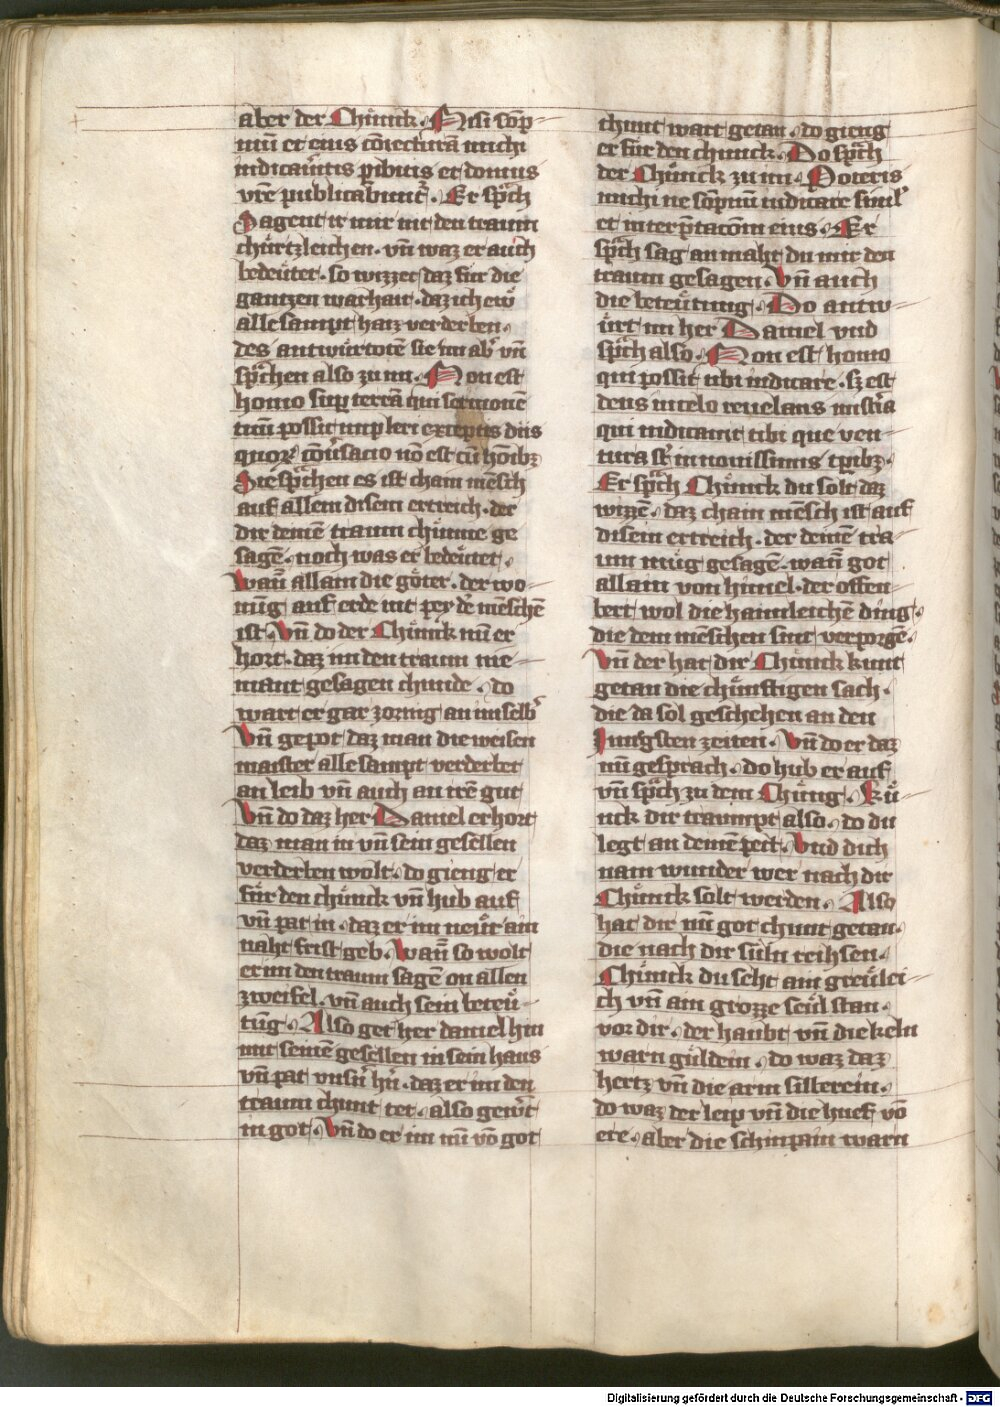 aber der Chünick. Nisi sōp-
niū et eius cōiecturā michi
indicaūitis pibitis et domus
vrē publicabunt². Er sp̄ch
Sagent ir mir nit den traum
chürtzleichen. vn̄ waz er auch
bedeütet. so wizzet daz für die
gantzen warhait. daz ich ew̄
alle sampt haiz verderben.
des antwürtotē sie im ab² vn̄
sp̄chen also zu im. Non est
homo sup terrā qui sermonē
tuū possit implere exceptis diis
quor² cōu²sacio nō est cū hōibz
Sie sp̄chen es ist chain mēsch
auf allem disem ertreich. der
dir deinē traum chünne ge
sagē. noch was er bedeütet.
wan̄ allain die göter. der wo-
nūg auf erde nit pey dē mēschē
ist. Vn̄ do der Chünick nū er
hort. daz im den traum nie-
mant gesagen chunde. do
wart er gar zornig an im selb²
Vn̄ gepot daz man die weisen
maister alle sampt verderbet
an leib vn̄ auch an irē gut
Vn̄ do daz her Daniel erhort
daz man in vn̄ sein gesellen
verderben wolt. do gieng er
für den chünick vn̄ hub auf
vn̄ pat in. daz er im neür ain
naht frist geb. Wan̄ so wolt
er im den traum sagē on allen
zweifel. vn̄ auch sein beteü-
tūg. Also get her daniel hin
mit seinē gesellen in sein haus
vn̄ pat vnsn̄ hn̄. daz er im den
traum chunt tet. also gew²t
in got. Vn̄ do er im nū vō got
chunt wart getan. do gieng
er für den chünick. Do sp̄ch
der Chünick zu im. Poteris
michi ne sōpniū indicare simul²
et interp̄tacōm eius. Er
sp̄ch sag an maht du mir den
traum gesagen. Vn̄ auch
die beteütung. Do antw-
ürt im her Daniel vnd
sp̄ch also. Non est homo
qui possit tibi indicare. sz est
deus in celo reuelans mist²ia
qui indicauit tibi que ven-
tura st² in nouissimis tp̄ibz.
Er sp̄ch Chünick du solt daz
wizzē. daz chain mēsch ist auf
disem ertreich. der deinē tra-
um müg gesagē. wan̄ got
allain von himel. der offen-
bert wol die haimleichē ding.
die dem mēschen sint verporgē.
Vn̄ der hat dir Chünick kunt
getan die chünftigen sach.
die da sol geschehen an den
Jungsten zeiten. Vn̄ do er daz
nū gesprach. do hub er auf
vn̄ sp̄ch zu dem Chünig. Kü-
nick dir traumpt also. do du
legt an deinē pett. Vnd dich
nam wunder wer nach dir
Chünick solt werden. Also
hat dir nū got chunt getan.
die nach dir süln reihsen.
Chünick du seht ain greülei-
ch vn̄ ain grozze seül stan.
vor dir. der haubt vn̄ die keln
warn guldein. do waz daz
hertz vn̄ die arm silberein.
do waz der leip vn̄ die huef vō
ere. aber die schinpain warn
Digitalisierung gefördert durch die Deutsche Forschungsgemeinschaft - DFG